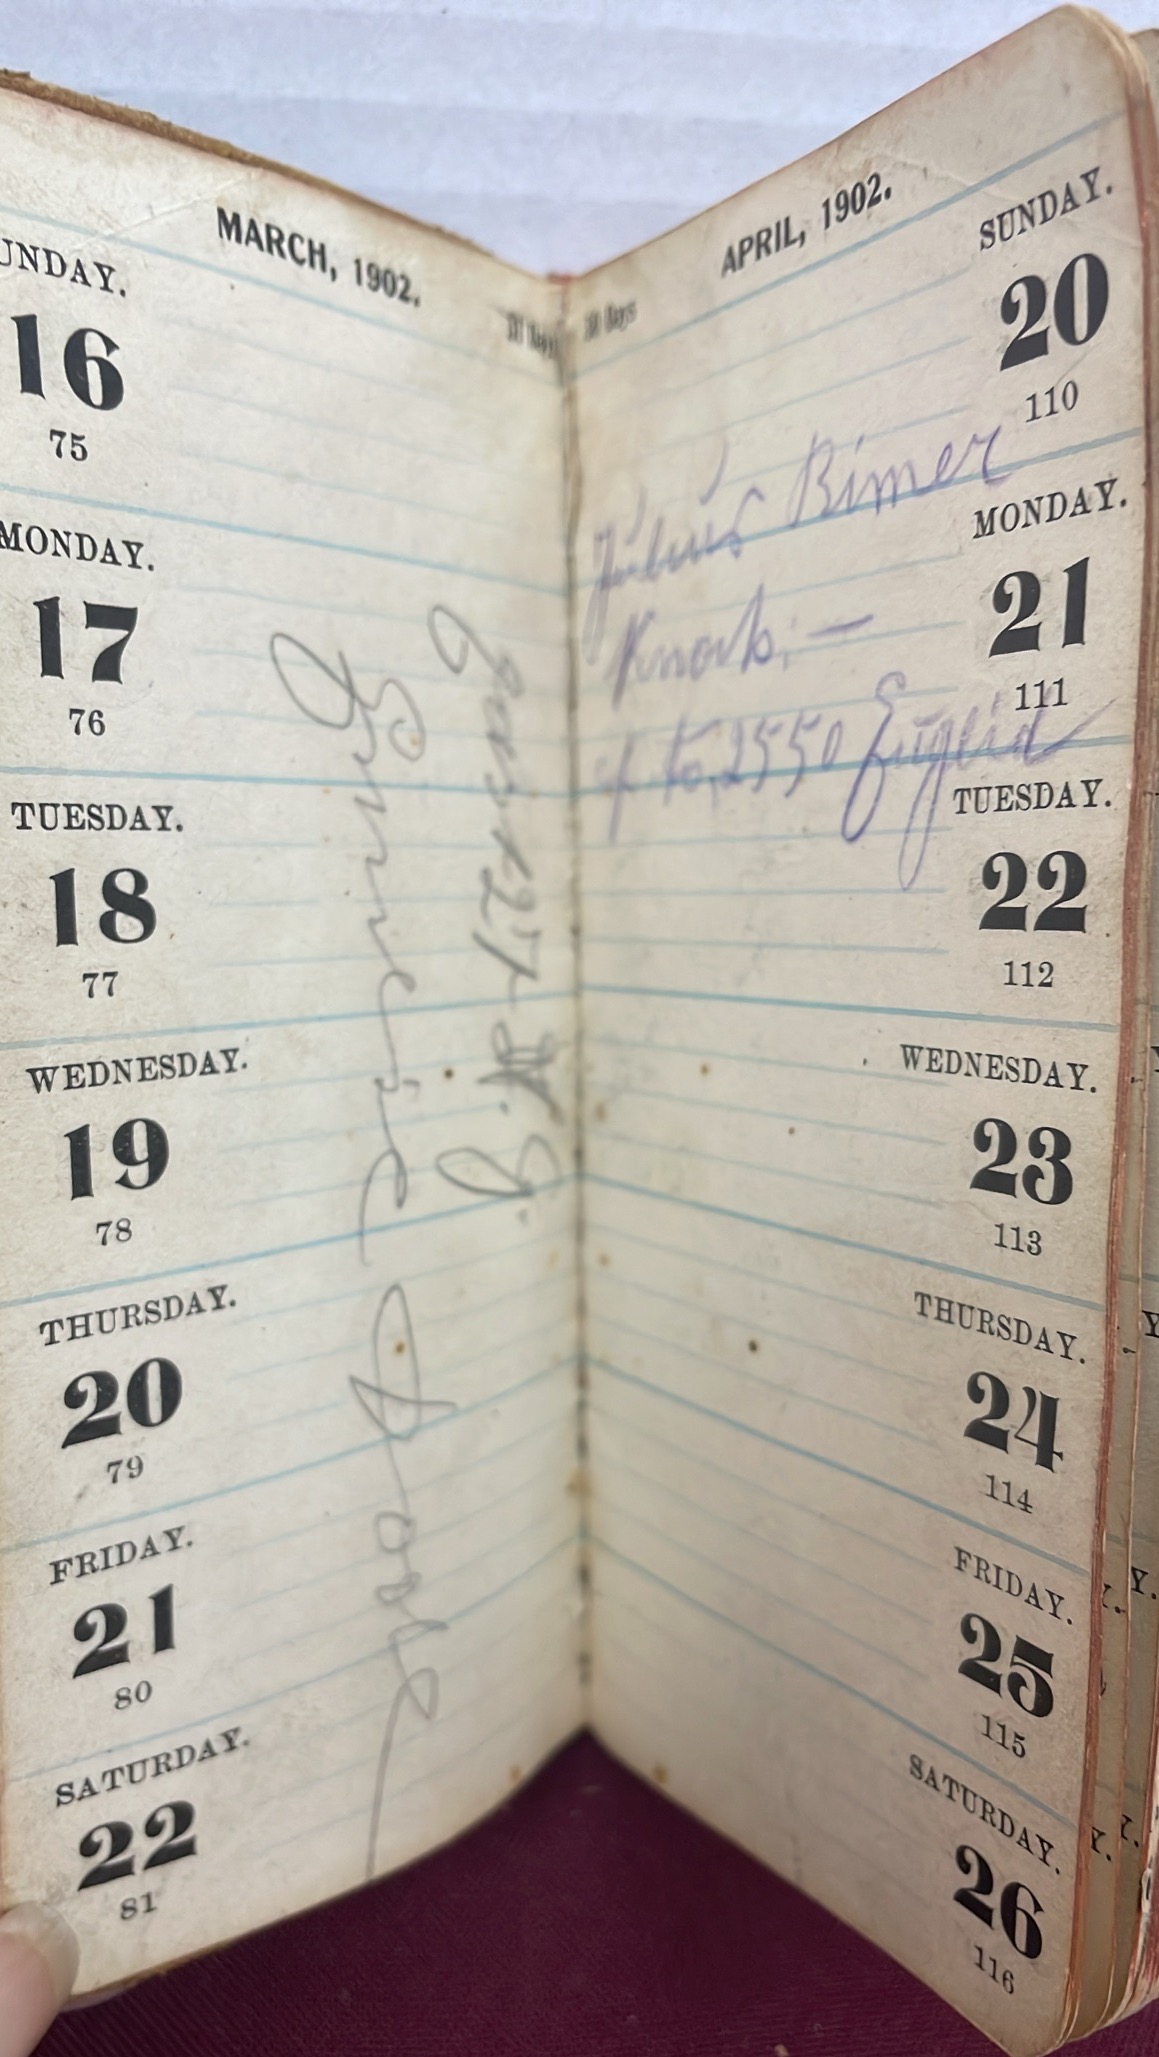 MARCH, 1902.
31 Days
UNDAY.
16
75
MONDAY.
17
76
TUESDAY.
18
77
WEDNESDAY.
19
78
THURSDAY.
20
79
FRIDAY.
21
80
SATURDAY.
22
81
APRIL, 1902.
30 Days
SUNDAY.
20
110
Julius Bimer
MONDAY.
21
111
2550
TUESDAY.
22
112
WEDNESDAY.
23
113
THURSDAY.
24
114
FRIDAY.
25
115
SATURDAY.
26
116